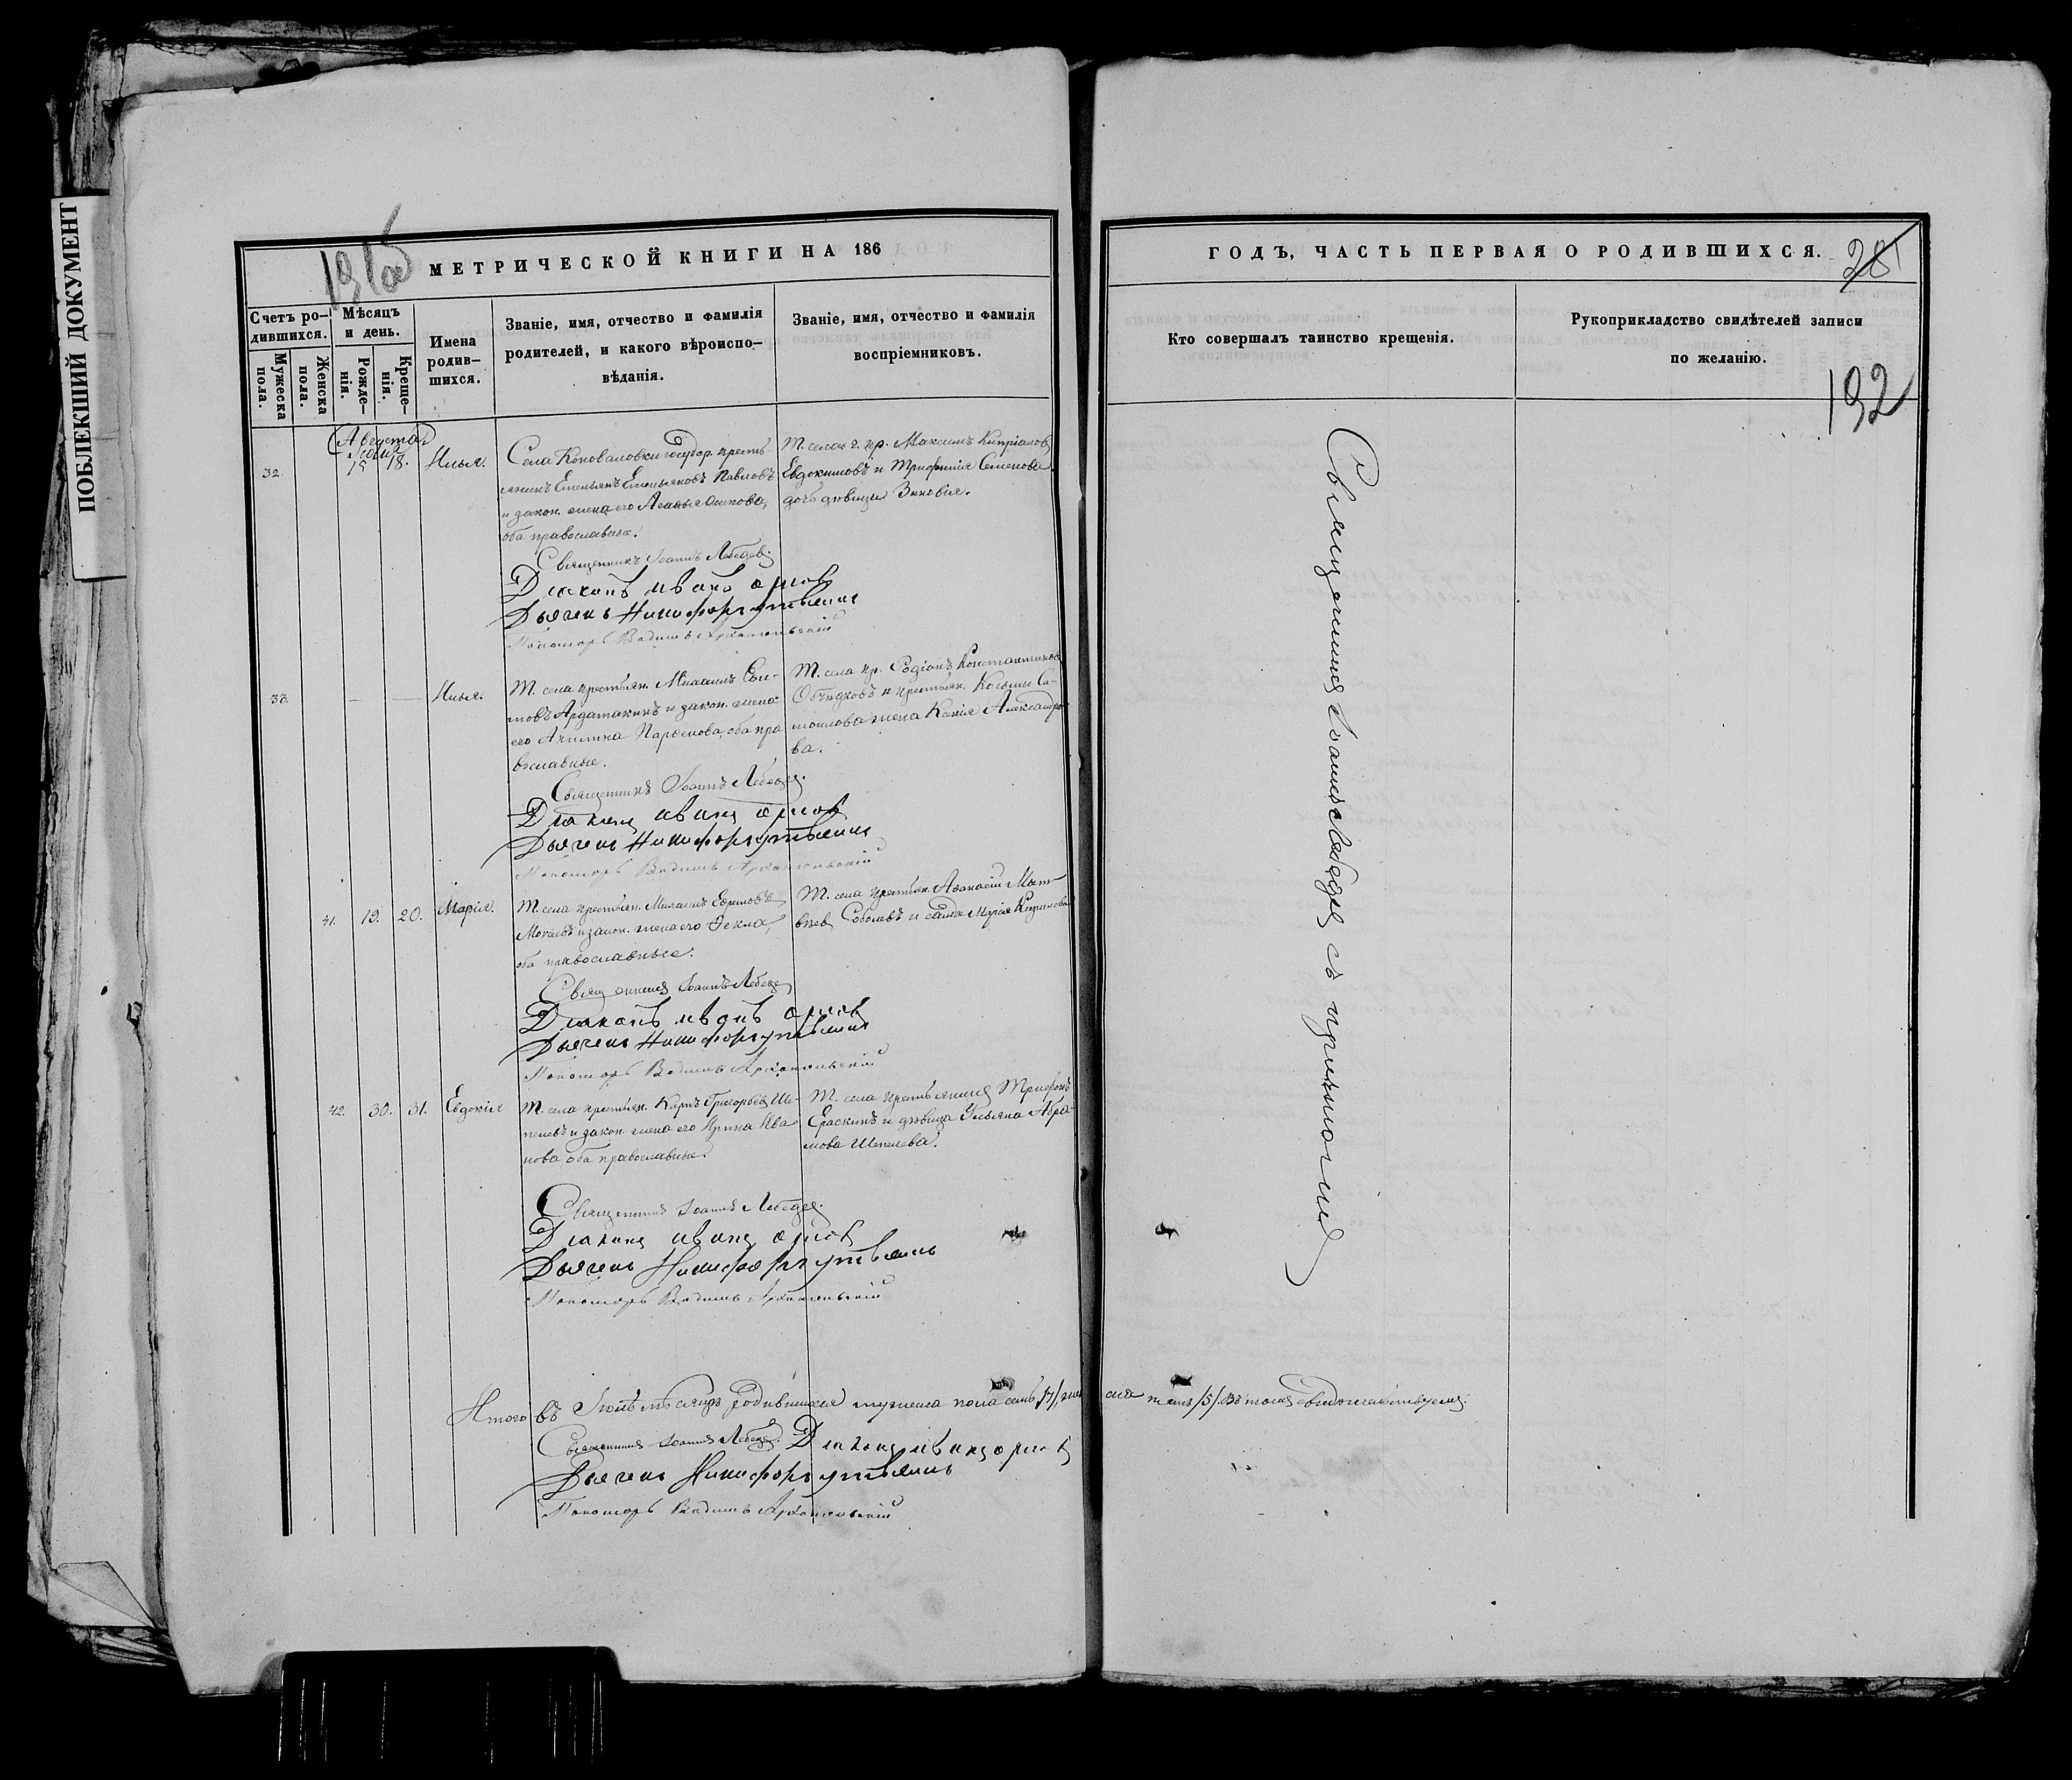 ПОБЛЕКШИЙ ДОКУМЕНТ
МЕТРИЧЕСКОЙ КНИГИ НА 186
Счетъ ро-
дившихся.
Мужеска
пола.
Женска
пола.
Мѣсяцъ
и день.
Рожде-
нія.
Креще-
нія.
Имена
родив-
шихся.
Званіе, имя, отчество и фамилія
родителей, и какого вѣроиспо-
вѣданія.
Званіе, имя, отчество и фамилія
воспріемниковъ.
32.
15 18.
Илья.
Села Коноваловки государ. кресть-
янинъ Емельянъ Емельяновъ Павловъ
и закон. жена его Осипова,
оба православные.
Т. села г. кр. Максимъ Кипріановъ
Евдокимовъ и Семенова
дочь дѣвица Зиновія.
Священникъ Іоаннъ Лебедевъ.
Діаконъ Иванъ Орловъ
Дьячекъ Никифоръ
Пономарь Вадимъ Архангельскій
33.
— —
Илья.
Т. села крестьян. Михаилъ
Ардатакинъ и закон. жена
его Акилина Парѳенова, оба пра
вославные.
Т. села кр. Родіонъ Константиновъ
Объѣдковъ и крестьян. Козьмы Са-
мойлова жена Ксенія Александро-
ва.
Священникъ Іоаннъ Лебедевъ.
Діаконъ Иванъ Орловъ
Дьячекъ Никифоръ
Пономарь Вадимъ Архангельскій
41.
19. 20.
Марія.
Т. села крестьян. Михаилъ Ефремовъ
и закон. жена его Ѳекла,
оба православные.
Т. села крестьян. Аѳанасій Мат-
вѣев Соболевъ и Марія
Священникъ Іоаннъ Лебедевъ
Діаконъ Иванъ Орловъ
Дьячекъ Никифоръ
Пономарь Вадимъ Архангельскій
42.
30. 31.
Евдокія
Т. села крестьян. Карпъ Григорьевъ Ше-
пелевъ и закон. жена его Ирина Ива
нова, оба православные.
Т. села крестьянинъ Трифонъ
Ераскинъ и дѣвица Ульяна Абра-
мова Шепелева.
Священникъ Іоаннъ Лебедевъ.
Діаконъ Иванъ Орловъ
Дьячекъ Никифоръ
Пономарь Вадимъ Архангельскій
Итого въ Іюлѣ мѣсяцѣ родившихся мужеска пола семь /7/, жен ска пять /5/. Въ томъ свидѣтельствуемъ.
Священникъ Іоаннъ Лебедевъ. Діаконъ Иванъ Орловъ
Дьячекъ Никифоръ
Пономарь Вадимъ Архангельскій
ГОДЪ, ЧАСТЬ ПЕРВАЯ О РОДИВШИХСЯ.
Кто совершалъ таинство крещенія.
Рукоприкладство свидѣтелей записи
по желанію.
192
Священникъ Іоаннъ Лебедевъ съ причтомъ